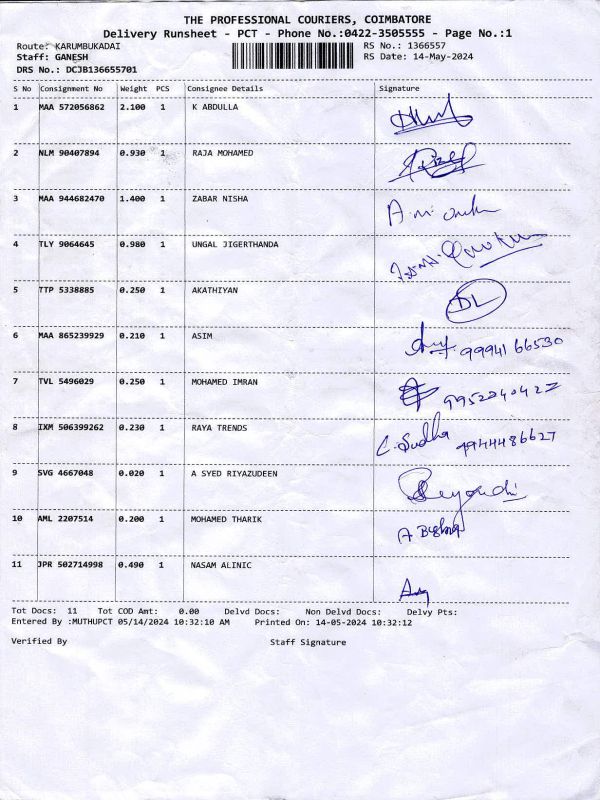 THE PROFESSIONAL COURIERS, COIMBATORE
Delivery Runsheet - PCT - Phone No.:0422-3505555 - Page No.:1
Route: KARUMBUKADAI RS No.: 1366557
Staff: GANESH RS Date: 14-May-2024
DRS No.: DCJB136655701
S No Consignment No Weight PCS Consignee Details Signature
1 MAA 572056862 2.100 1 K ABDULLA
2 NLM 90407894 0.930 1 RAJA MOHAMED
3 MAA 944682470 1.400 1 ZABAR NISHA
4 TLY 9064645 0.980 1 UNGAL JIGERTHANDA
5 TTP 5338885 0.250 1 AKATHIYAN DL
6 MAA 865239929 0.210 1 ASIM 9994166530
7 TVL 5496029 0.250 1 MOHAMED IMRAN 9952240422
8 IXM 506399262 0.230 1 RAYA TRENDS C. Sudha 9944486627
9 SVG 4667048 0.020 1 A SYED RIYAZUDEEN
10 AML 2207514 0.200 1 MOHAMED THARIK
11 JPR 502714998 0.490 1 NASAM ALINIC
Tot Docs: 11 Tot COD Amt: 0.00 Delvd Docs: Non Delvd Docs: Delvy Pts:
Entered By :MUTHUPCT 05/14/2024 10:32:10 AM Printed On: 14-05-2024 10:32:12
Verified By Staff Signature